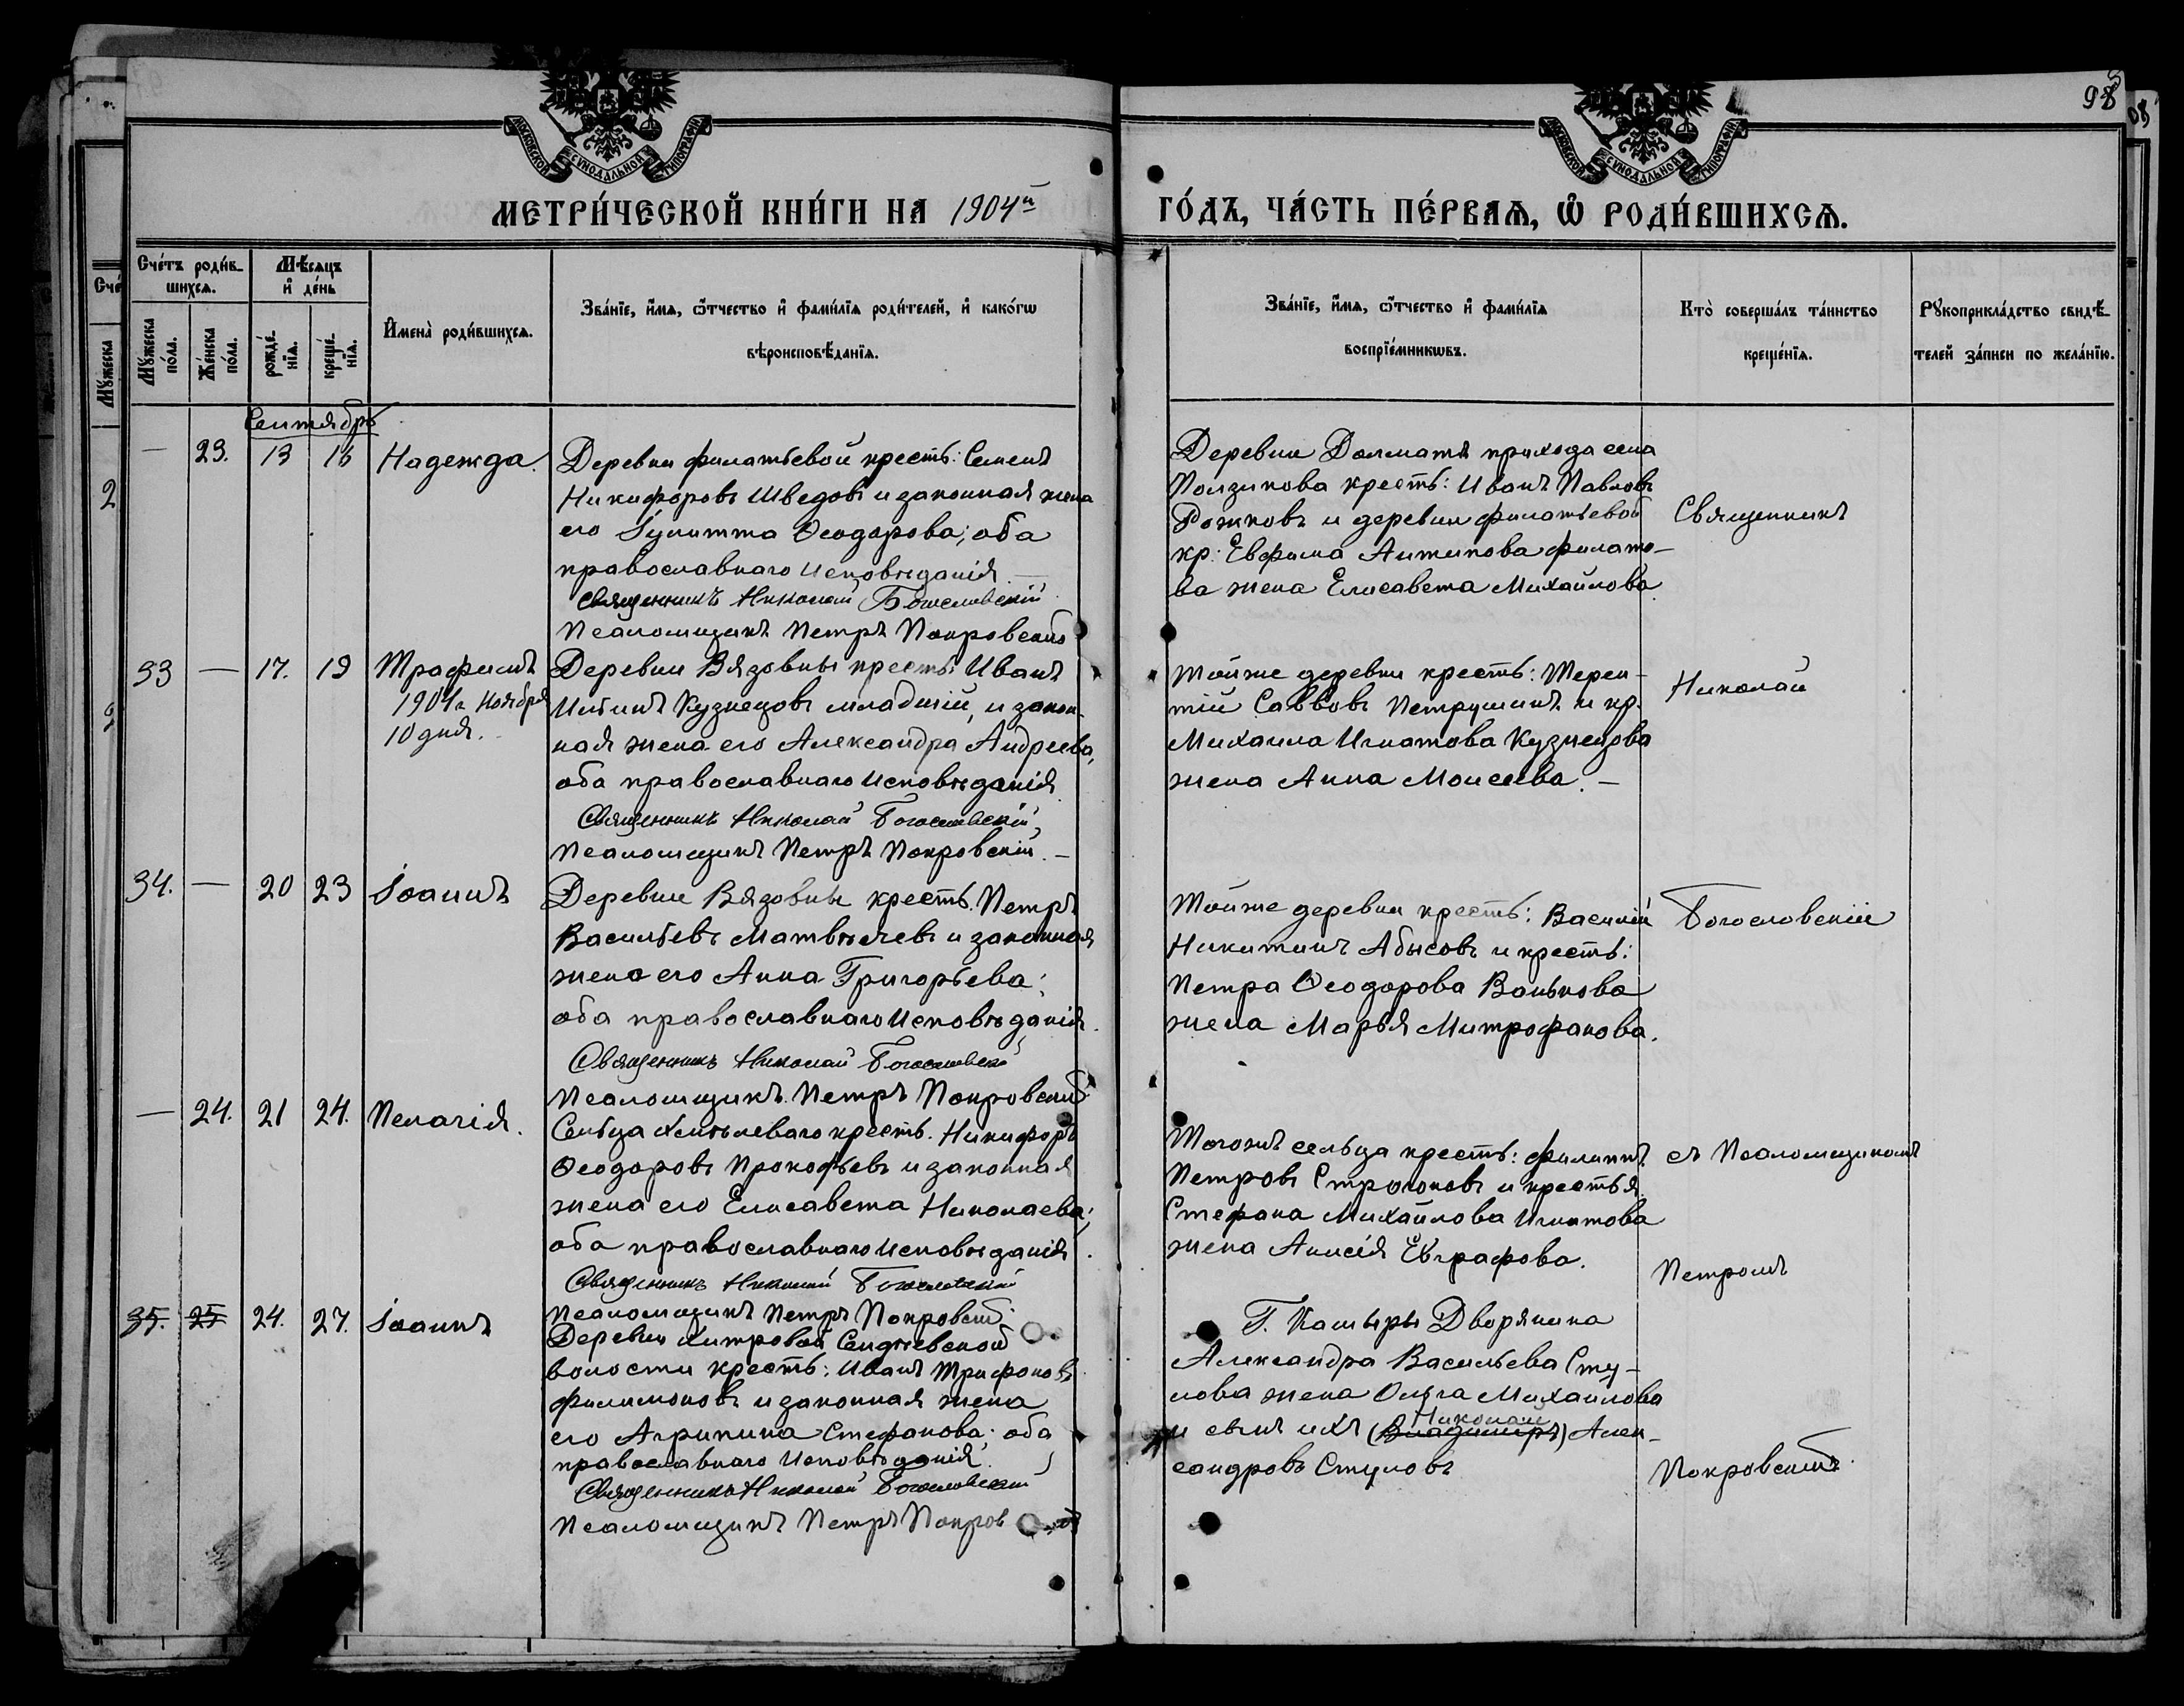 98
МОСКОВСКОЙ СѴНОДАЛЬНОЙ ТИПОГРАФІИ
МОСКОВСКОЙ СѴНОДАЛЬНОЙ ТИПОГРАФІИ
МЕТРИ́ЧЕСКОЙ КНИ́ГИ НА 1904й
ГО́ДЪ, ЧА́СТЬ ПЕ́РВАѦ, Ѽ РОДИ́ВШИХСѦ.
Сче́тъ роди́в-
шихсѧ.
Мꙋ́жеска по́ла.
Же́нска по́ла.
Мѣ́сѧцъ
и҆ де́нь
рожде́-
нїѧ.
креще́-
нїѧ.
И҆мена̀ роди́вшихсѧ.
Зва́нїе, и҆́мѧ, ѻ҆́тчество и҆ фами́лїѧ роди́телей, и҆ како́гѡ
вѣроисповѣ́данїѧ.
Зва́нїе, и҆́мѧ, ѻ҆́тчество и҆ фами́лїѧ
воспрїе́мникѡвъ.
Кто̀ соверша́лъ та́инство
креще́нїѧ.
Рꙋкоприкла́дство свидѣ́-
телей за́писи по жела́нїю.
Сентябрь
— 23. 13 16 Надежда.
Деревни Филатьевой кресть: Семенъ
Никифоровъ Шведовъ и законная жена
его Іулитта Ѳеодорова; оба
православнаго исповѣданія. —
Священникъ Николай Богословскій
Псаломщикъ Петръ Покровскій
Деревни Долматъ прихода села
Ползикова кресть: Иванъ Павловъ
Рожковъ и деревни Филатьевой
кр: Евфима Антипова Филато-
ва жена Елисавета Михайлова.
Священникъ
33 — 17. 19 Трофимъ
1901г. Ноября
10 дня.
Деревни Вязовны кресть: Иванъ
Ильинъ Кузнецовъ младшій, и закон-
ная жена его Александра Андреева,
оба православнаго исповѣданія
Священникъ Николай Богословскій,
Псаломщикъ Петръ Покровскій. —
Тойже деревни кресть: Терен-
тій Савовъ Петрушинъ и кр.
Михаила Игнатова Кузнецова
жена Анна Моисеева. —
Николай
34. — 20 23 Іоаннъ
Деревни Вязовны кресть. Петръ
Васильевъ Матвѣечевъ и законная
жена его Анна Григорьева;
оба православнаго исповѣданія.
Священникъ Николай Богословскій
Псаломщикъ Петръ Покровскій
Тойже деревни кресть: Василій
Никитинъ Абысовъ и кресть:
Петра Ѳеодорова Ванькова
жена Марья Митрофанова.
Богословскій
— 24. 21 24. Пелагія.
Сельца Хмѣлеваго кресть. Никифоръ
Ѳеодоровъ Прокофьевъ и законная
жена его Елисавета Николаева;
оба православнаго исповѣданія.
Священникъ Николай Богословскій
Псаломщикъ Петръ Покровскій
Тогожъ сельца кресть: Филиппъ
Петровъ Строгоновъ и крестья.
Стефана Михайлова Игнатова
жена Анисія Евграфова.
съ Псаломщикомъ
Петромъ
35. 25 24. 27. Іоаннъ
Деревни Хитровой Сендѣевской
волости кресть: Иванъ Трифоновъ
Филимоновъ и законная жена
его Агрипина Стефанова; оба
православнаго исповѣданія.
Священникъ Николай Богословскій
Псаломщикъ Петръ Покров
Г. Каширы Дворянина
Александра Васильева Сту-
лова жена Ольга Михайлова
Николай
и сынъ ихъ (Владимиръ) Алек-
сандровъ Стуловъ
Покровскимъ